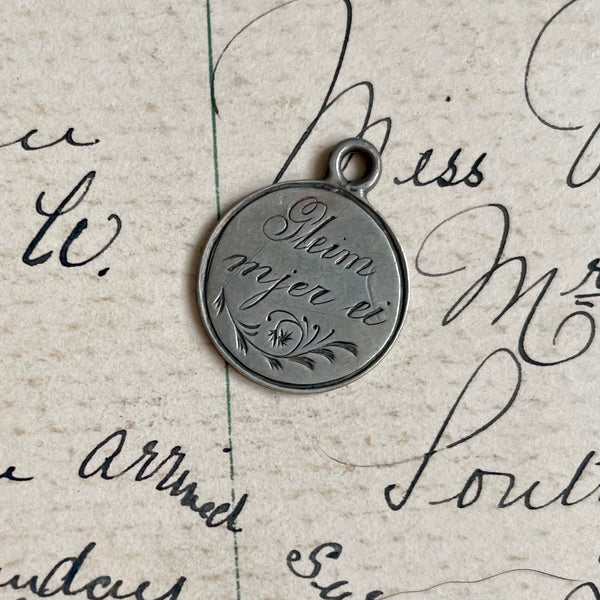 Miss
W.
Gleim
mjer ei
Mr
South
arrived